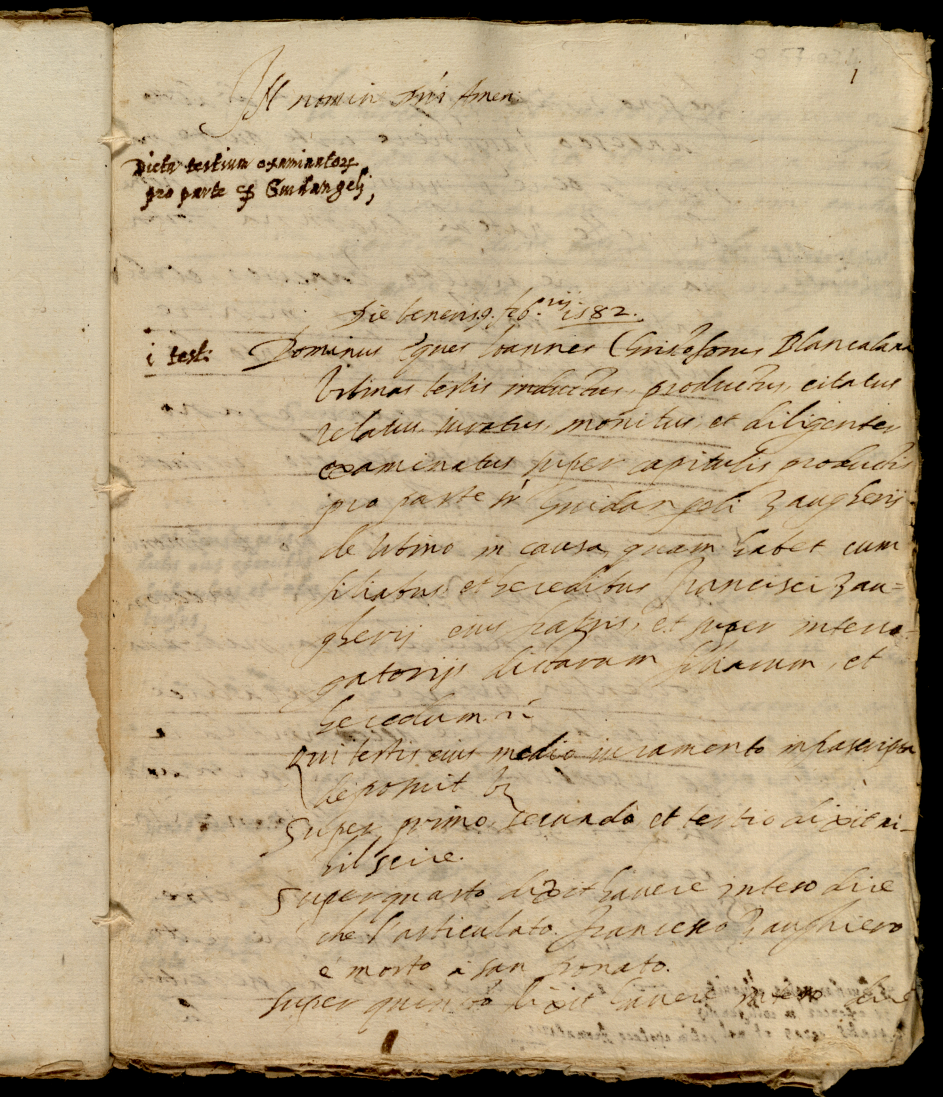 1
In nomine Dni Amen
Dicta testium examinatorum
pro parte Guidangeli,
Die Veneris 9. 9bris 1582.
i test: Dominus Eques Joannes Christoforus Blancalana
Urbinas testis inductus, productus, citatus
relatus, iuratus, monitus, et diligenter
examinatus super capitulis productis
pro parte Guidangeli Zaugherij
de Urbino in causa, quam habet cum
filiabus et heredibus Francisci Zau=
gherij eius fratris, et super interro=
gatorijs dictarum filiarum, et
heredum
Qui testis, eius medio iuramento infrascripta
deposuit
Super primo, secundo et tertio dixit ni-
hil scire.
Super quarto dixit havere inteso dire
che l'articulato Francesco Zaughiero
è morto a san Donato.
Super quinto dixit havere inteso dire